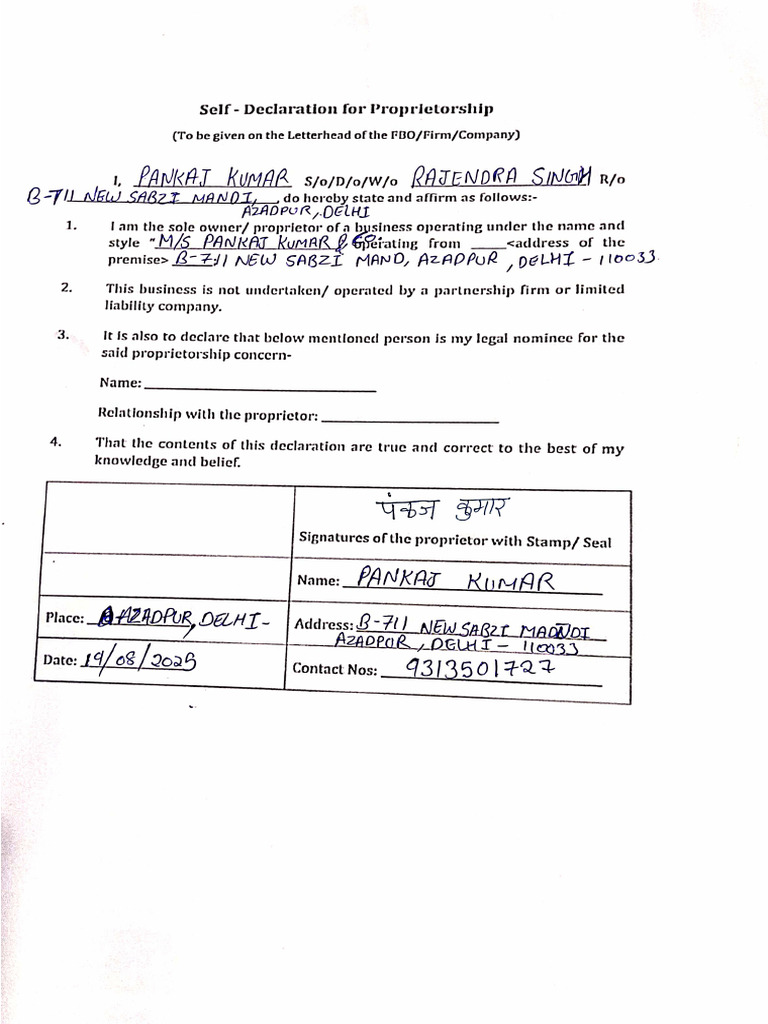 Self - Declaration for Proprietorship
(To be given on the Letterhead of the FBO/Firm/Company)
I, PANKAJ KUMAR S/o/D/o/W/o RAJENDRA SINGH R/o
B-711 NEW SABZI MANDI, do hereby state and affirm as follows:-
AZADPUR, DELHI
1. I am the sole owner/ proprietor of a business operating under the name and
style "M/S PANKAJ KUMAR & CO. operating from _____<address of the
premise> B-711 NEW SABZI MAND, AZADPUR, DELHI - 110033
2. This business is not undertaken/ operated by a partnership firm or limited
liability company.
3. It is also to declare that below mentioned person is my legal nominee for the
said proprietorship concern-
Name: ____________________
Relationship with the proprietor: ____________________
4. That the contents of this declaration are true and correct to the best of my
knowledge and belief.
पंकज कुमार
Signatures of the proprietor with Stamp/ Seal
Name: PANKAJ KUMAR
Place: AZADPUR, DELHI-
Address: B-711 NEW SABZI MANDI
AZADPUR, DELHI - 110033
Date: 19/08/2025
Contact Nos: 9313501727